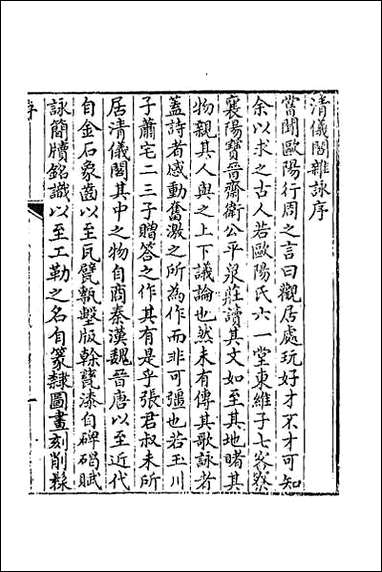 清儀閣雜詠序
嘗聞歐陽行周之言曰觀居處玩好才不才可知
余以求之古人若歐陽氏六一堂東維子七客寮
襄陽寶晉齋衛公平泉莊讀其文如至其地睹其
物親其人與之上下議論也然未有傳其歌詠者
蓋詩者感動奮激之所為作而非可彊也若玉川
子蕭宅二三子贈答之作其有是乎張君叔未所
居清儀閣其中之物自商秦漢魏晉唐以至近代
自金石象齒以至瓦甓瓴甋版榦甆漆自碑碣賦
詠簡牘銘識以至工勒之名自篆隸圖畫刻削髹
序
一